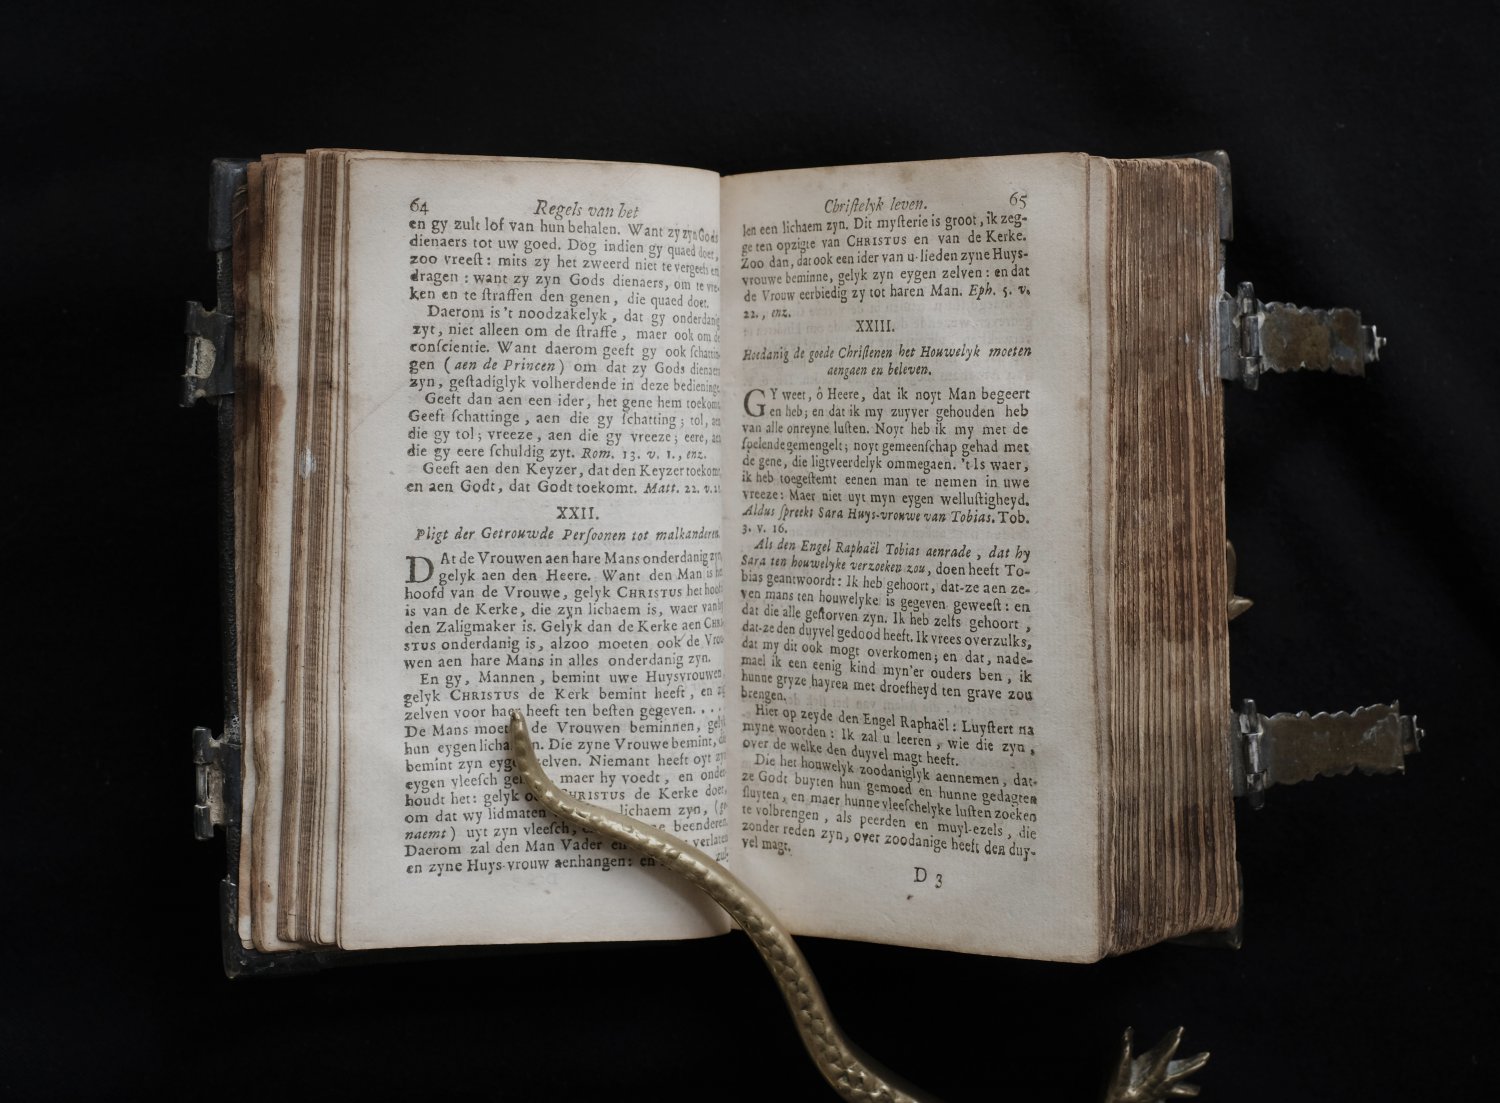 64
Regels van het
en gy zult lof van hun behalen. Want zy zyn Gods
dienaers tot uw goed. Dog indien gy quaed doet,
zoo vreeſt: mits zy het zweerd niet te vergeefs en
dragen: want zy zyn Gods dienaers, om te vre-
ken en te ſtraffen den genen, die quaed doet.
Daerom is't noodzakelyk, dat gy onderdanig
zyt, niet alleen om de ſtraffe, maer ook om de
conſcientie. Want daerom geeft gy ook ſchattin-
gen (aen de Princen) om dat zy Gods dienaers
zyn, geſtadiglyk volherdende in deze bedieninge.
Geeft dan aen een ider, het gene hem toekomt.
Geeft ſchattinge, aen die gy ſchatting; tol, aen
die gy tol; vreeze, aen die gy vreeze; eere, aen
die gy eere ſchuldig zyt. Rom. 13. v. 1., enz.
Geeft aen den Keyzer, dat den Keyzer toekomt,
en aen Godt, dat Godt toekomt. Matt. 22. v.
XXII.
Pligt der Getrouwde Perſoonen tot malkanderen.
DAt de Vrouwen aen hare Mans onderdanig zyn,
gelyk aen den Heere. Want den Man is het
hoofd van de Vrouwe, gelyk CHRISTUS het hoofd
is van de Kerke, die zyn lichaem is, waer van hy
den Zaligmaker is. Gelyk dan de Kerke aen CHRI-
STUS onderdanig is, alzoo moeten ook de Vrou-
wen aen hare Mans in alles onderdanig zyn.
En gy, Mannen, bemint uwe Huysvrouwen,
gelyk CHRISTUS de Kerk bemint heeft, en zig
zelven voor haer heeft ten beſten gegeven. . . .
De Mans moeten de Vrouwen beminnen, gelyk
hun eygen lichamen. Die zyne Vrouwe bemint, die
bemint zyn eygen zelven. Niemant heeft oyt zyn
eygen vleeſch maer hy voedt, en onder-
houdt het: gelyk ook CHRISTUS de Kerke doet,
om dat wy lidmaten lichaem zyn, (ge-
naemt) uyt zyn vleeſch, beenderen.
Daerom zal den Man Vader en verlaten
en zyne Huys-vrouw aenhangen: en
zul-
Chriſtelyk leven.
65
len een lichaem zyn. Dit myſterie is groot, ik zeg-
ge ten opzigte van CHRISTUS en van de Kerke.
Zoo dan, dat ook een ider van u-lieden zyne Huys-
vrouwe beminne, gelyk zyn eygen zelven: en dat
de Vrouw eerbiedig zy tot haren Man. Eph. 5. v.
22., enz.
XXIII.
Hoedanig de goede Chriſtenen het Houwelyk moeten
aengaen en beleven.
GY weet, ô Heere, dat ik noyt Man begeert
en heb; en dat ik my zuyver gehouden heb
van alle onreyne luſten. Noyt heb ik my met de
ſpelende gemengelt; noyt gemeenſchap gehad met
de gene, die ligtveerdelyk ommegaen. 't Is waer,
ik heb toegeſtemt eenen man te nemen in uwe
vreeze: Maer niet uyt myn eygen welluſtigheyd.
Aldus ſpreekt Sara Huys-vrouwe van Tobias. Tob.
3. v. 16.
Als den Engel Raphaël Tobias aenrade, dat hy
Sara ten houwelyke verzoeken zou, doen heeft To-
bias geantwoordt: Ik heb gehoort, dat-ze aen ze-
ven mans ten houwelyke is gegeven geweeſt: en
dat die alle geſtorven zyn. Ik heb zelfs gehoort,
dat-ze den duyvel gedood heeft. Ik vrees overzulks,
dat my dit ook mogt overkomen; en dat, nade-
mael ik een eenig kind myn'er ouders ben, ik
hunne gryze hayren met droefheyd ten grave zou
brengen.
Hier op zeyde den Engel Raphaël: Luyſtert na
myne woorden: Ik zal u leeren, wie die zyn,
over de welke den duyvel magt heeft.
Die het houwelyk zoodaniglyk aennemen, dat-
ze Godt buyten hun gemoed en hunne gedagten
ſluyten, en maer hunne vleeſchelyke luſten zoeken
te volbrengen, als peerden en muyl-ezels, die
zonder reden zyn, over zoodanige heeft den duy-
vel magt.
D 3